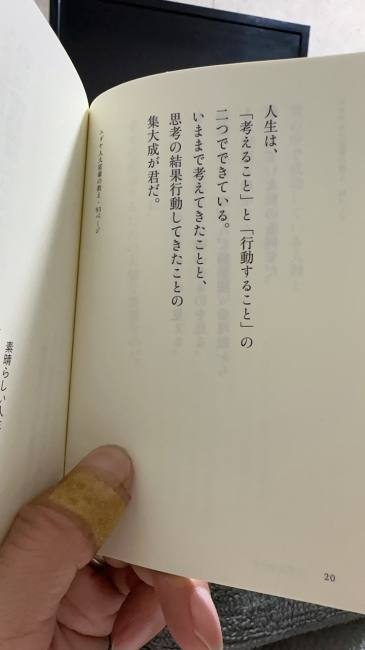 人生は、
「考えること」と「行動すること」の
二つでできている。
いままで考えてきたことと、
思考の結果行動してきたことの
集大成が君だ。
ユダヤ人大富豪の教え・93ページ
20
素晴らしい人